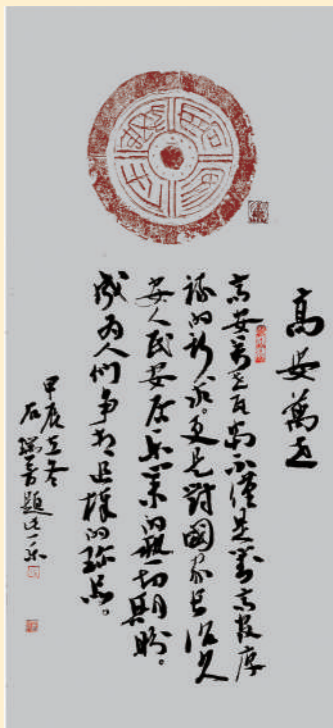 高安萬世
高安万世瓦当不僅是对高厚
禄的祈求。更是對國家長治久
安人民安居樂業的殷切期盼。
成为人們争相追捧的珍品。
甲辰立冬
石瑞題